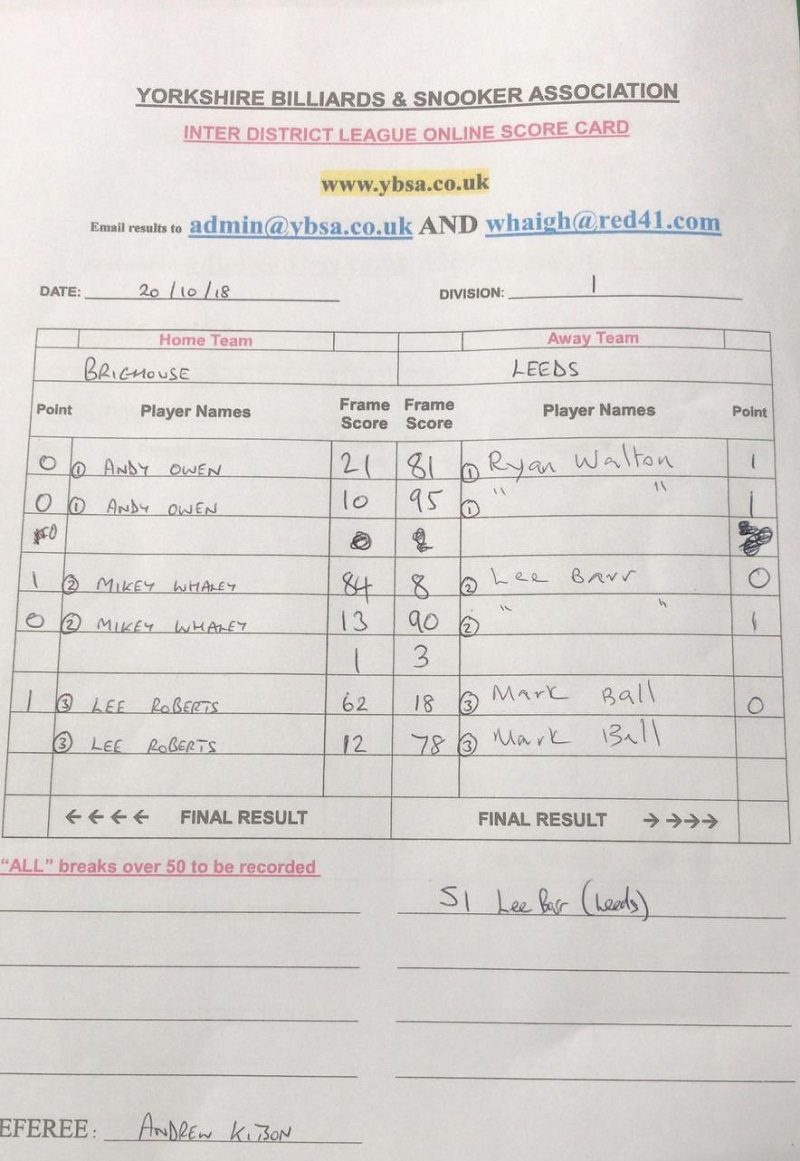 YORKSHIRE BILLIARDS & SNOOKER ASSOCIATION
INTER DISTRICT LEAGUE ONLINE SCORE CARD
www.ybsa.co.uk
Email results to admin@ybsa.co.uk AND whaigh@red41.com
DATE: 20/10/18 DIVISION: 1
Home Team Away Team
BRIGHOUSE LEEDS
Point Player Names Frame Score Frame Score Player Names Point
0 ① ANDY OWEN 21 81 ① Ryan Walton 1
0 ① ANDY OWEN 10 95 ① " " 1
1 ② MIKEY WHALEY 84 8 ② Lee Barr 0
0 ② MIKEY WHALEY 13 90 ② " " 1
1 3
1 ③ LEE ROBERTS 62 18 ③ Mark Ball 0
③ LEE ROBERTS 12 78 ③ Mark Ball
←←←← FINAL RESULT FINAL RESULT →→→→
"ALL" breaks over 50 to be recorded
51 Lee Barr (Leeds)
EFEREE: ANDREW